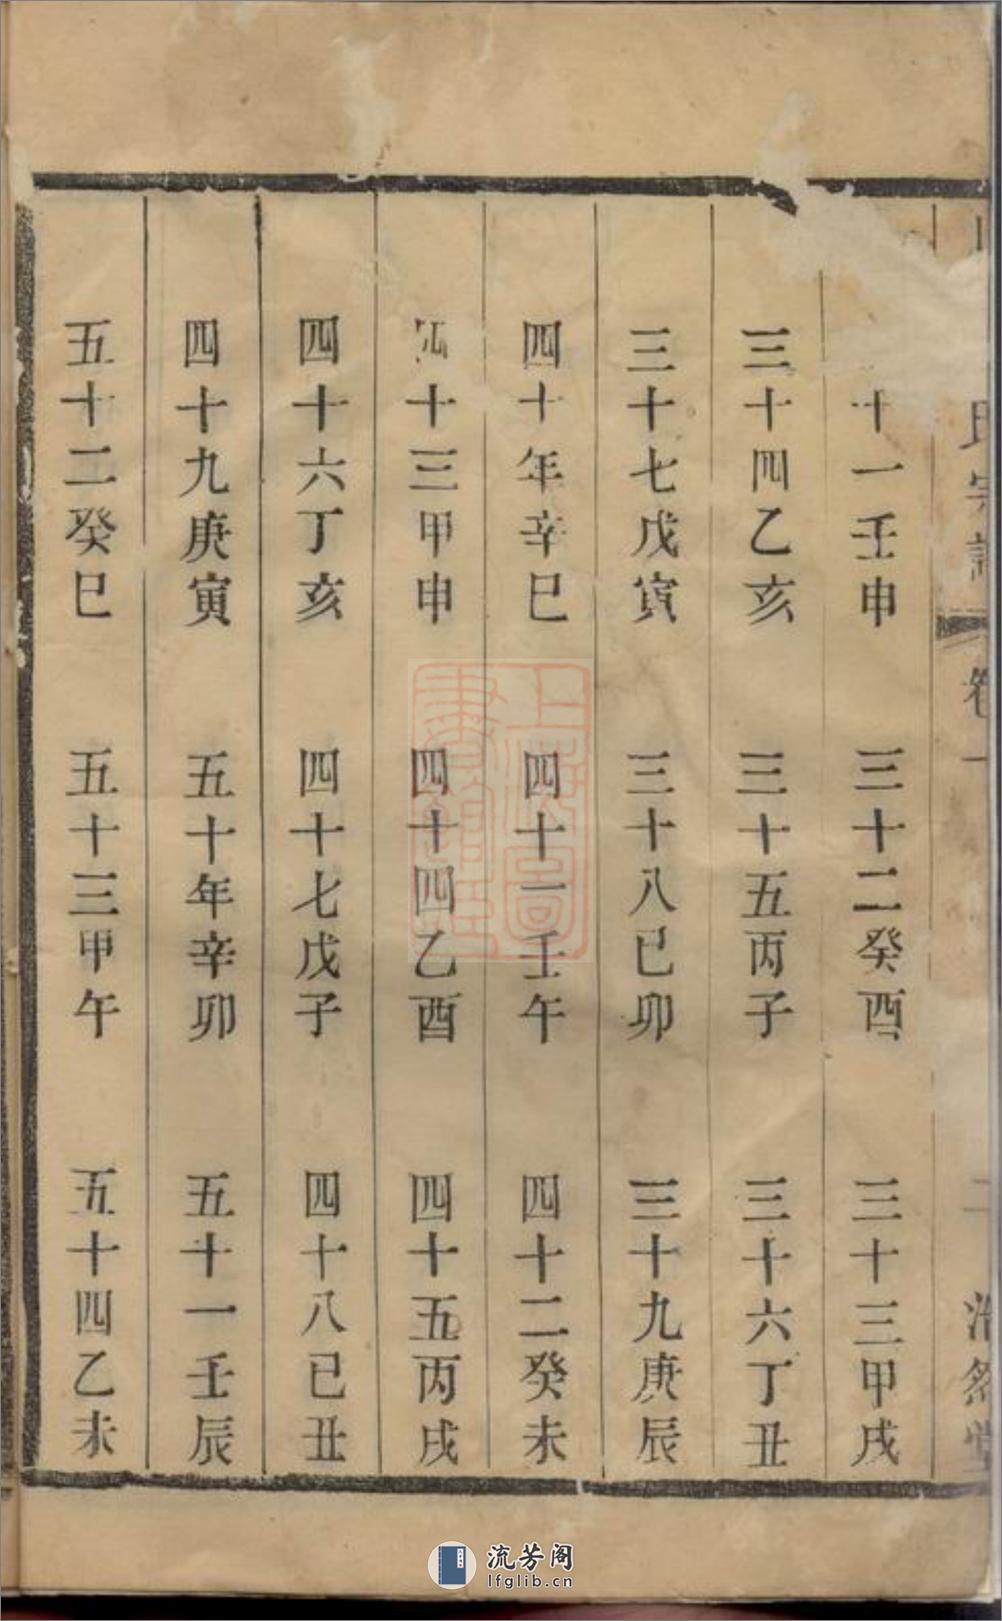 十一壬申 三十二癸酉 三十三甲戌
三十四乙亥 三十五丙子 三十六丁丑
三十七戊寅 三十八已卯 三十九庚辰
四十年辛巳 四十一壬午 四十二癸未
四十三甲申 四十四乙酉 四十五丙戌
四十六丁亥 四十七戊子 四十八已丑
四十九庚寅 五十年辛卯 五十一壬辰
五十二癸巳 五十三甲午 五十四乙未
氏宗譜 卷一 二 浩然堂
上海圖書館藏
流芳阁
lfglib.cn